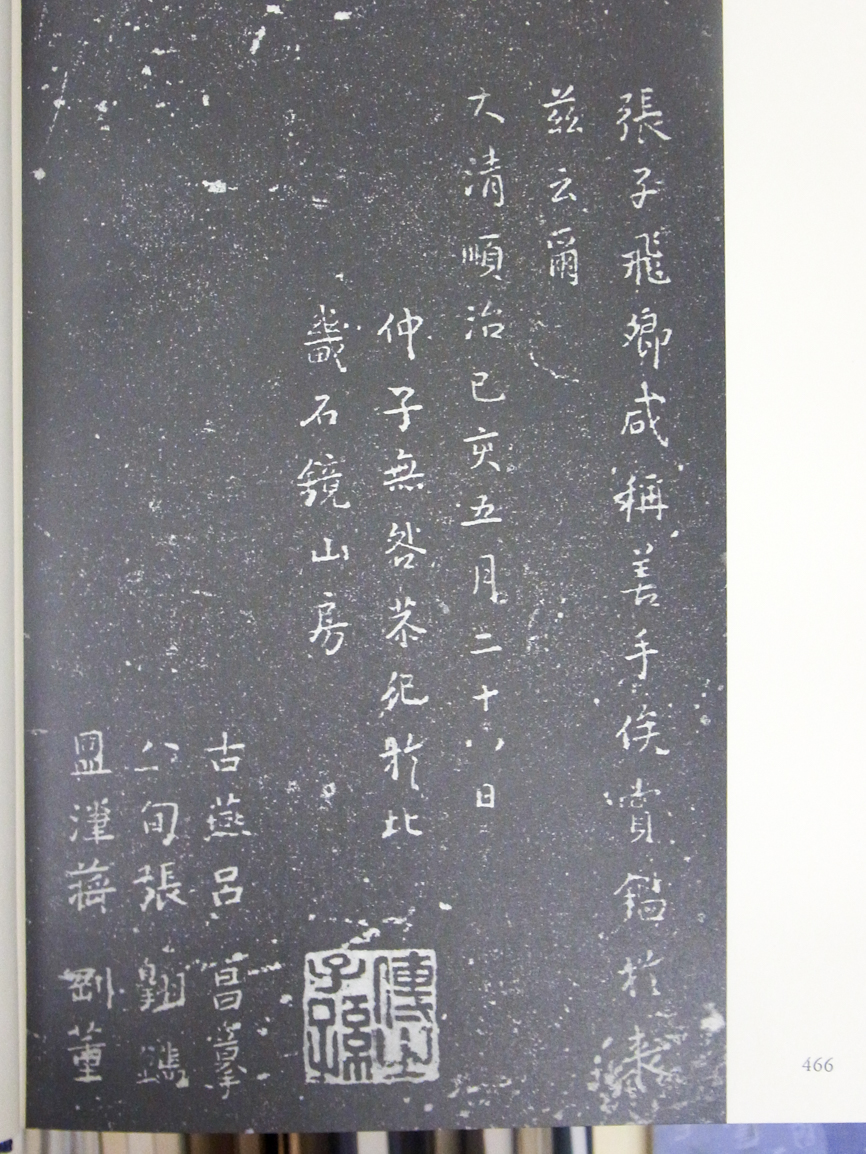 張子飛卿咸稱善手俟賞鑑於來
茲云爾
大清順治己亥五月二十八日
仲子無咎恭紀於北
畿石鏡山房
古燕呂昌摹
公甸張翱鐫
盟津蔣劉董
傳之
子孫
466